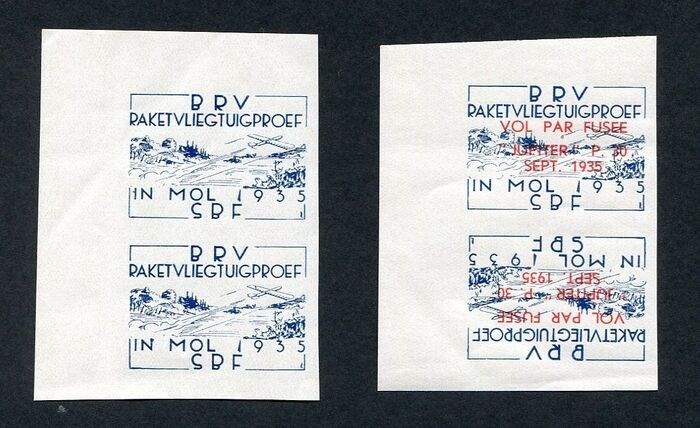 BRV
RAKETVLIEGTUIGPROEF
IN MOL 1935
SBF
BRV
RAKETVLIEGTUIGPROEF
IN MOL 1935
SBF
BRV
RAKETVLIEGTUIGPROEF
VOL PAR FUSEE
"JUPITER" P. 30
SEPT. 1935
IN MOL 1935
SBF
BRV
RAKETVLIEGTUIGPROEF
VOL PAR FUSEE
"JUPITER" P. 30
SEPT 1935
IN MOL 1935
SBF